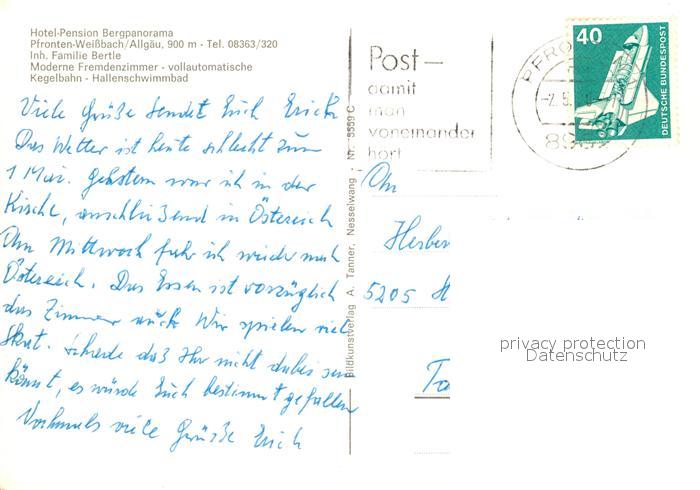 Hotel-Pension Bergpanorama
Pfronten-Weißbach/Allgäu, 900 m - Tel. 08363/320
Inh. Familie Bertle
Moderne Fremdenzimmer - vollautomatische
Kegelbahn - Hallenschwimmbad
Viele Grüße sendet Euch Erich
Das Wetter ist heute schlecht zum
1 Mai. Gestern war ich in der
Kirche, anschließend in Österreich
Am Mittwoch fuhr ich wieder nach
Österreich. Das Essen ist vorzüglich
das Zimmer auch. Wir spielen viel
Skat. Schade das Ihr nicht dabei sein
könnt, es würde Euch bestimmt gefallen
Nochmals viele Grüße Erich
Bildkunstverlag A. Tanner, Nesselwang - Nr. 5559 C
Post-
damit
man
voneinander
hört
PFRO
-2.5.
40
DEUTSCHE BUNDESPOST
An
Herber
5205 H
privacy protection
Datenschutz